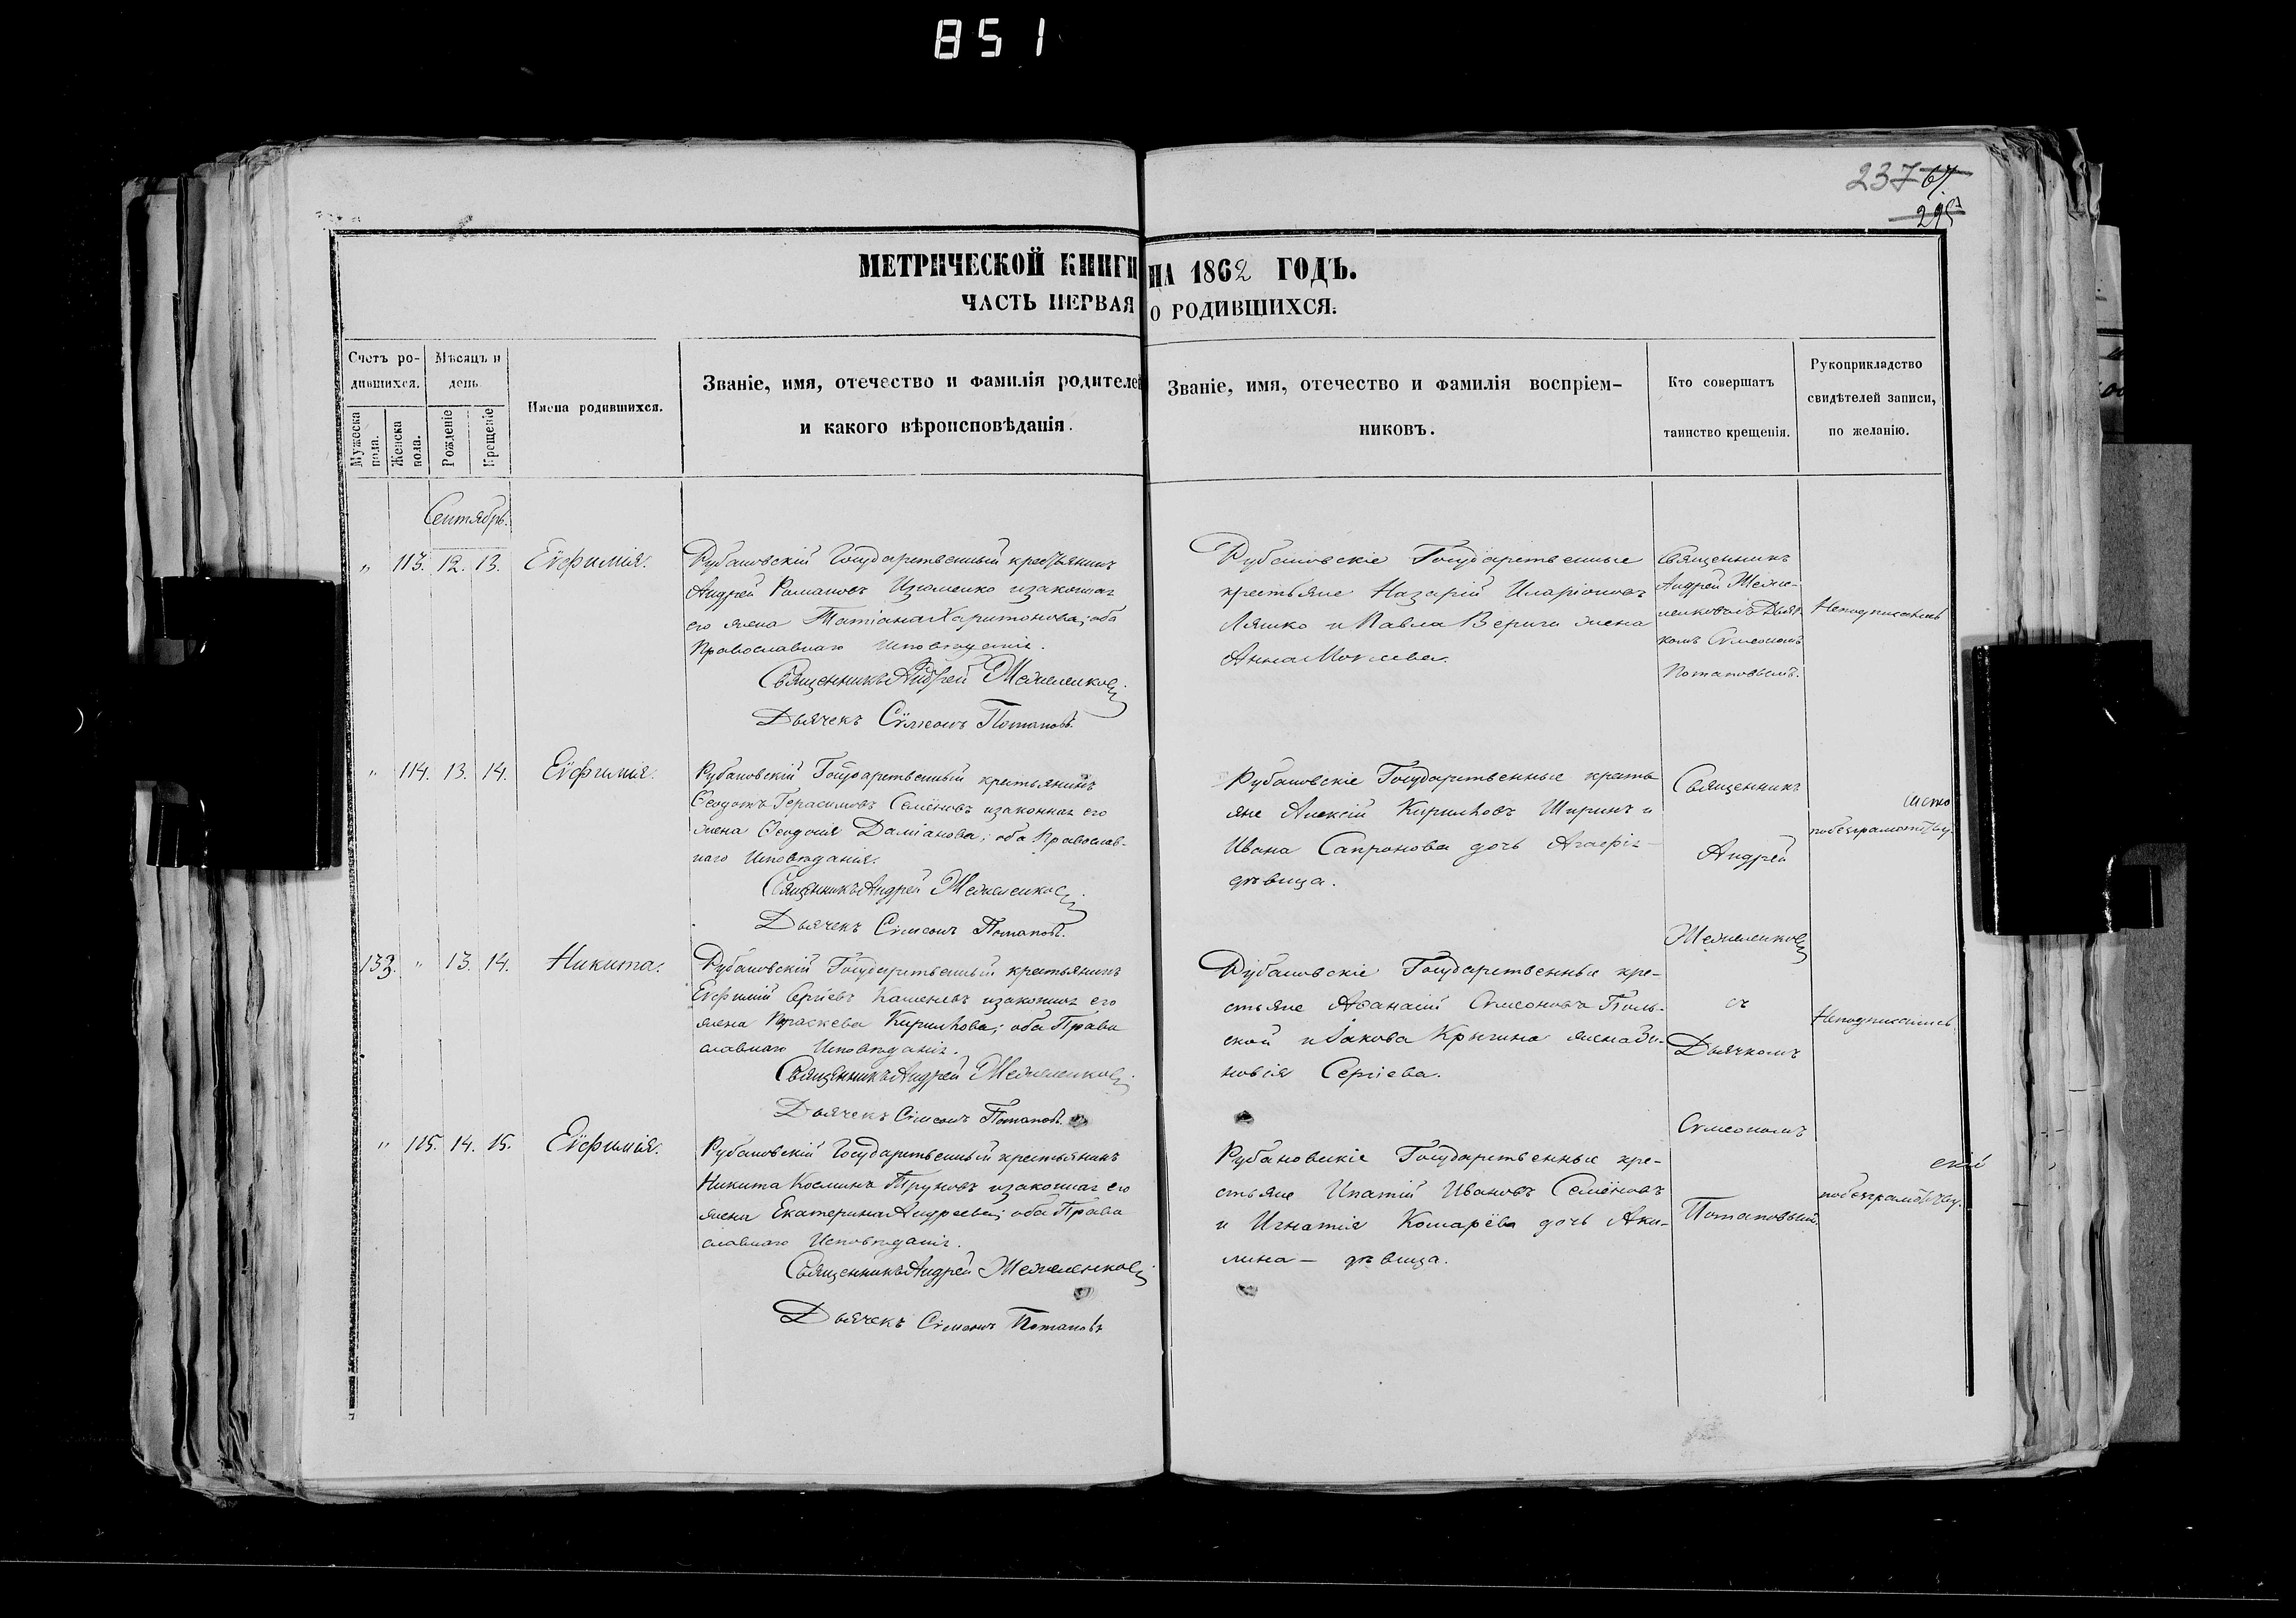 851
237 67
295
МЕТРИЧЕСКОЙ КНИГИ НА 1862 ГОДЪ.
ЧАСТЬ ПЕРВАЯ О РОДИВШИХСЯ.
Счетъ ро-
дившихся.
Мужеска пола.
Женска пола.
Мѣсяцъ и
день
Рожденіе
Крещеніе
Имена родившихся.
Званіе, имя, отечество и фамилія родителей
и какого вѣроисповѣданія.
Званіе, имя, отечество и фамилія воспріем-
никовъ.
Кто совершатъ
таинство крещенія.
Рукоприкладство
свидѣтелей записи,
по желанію.
Сентябрь.
" 113. 12. 13. Еѵфимія.
Рубановскій Государственный крестьянинъ
Андрей Романовъ Изюменко изаконная
его жена Татіана Харитонова; оба
Православнаго Исповѣданія.
Священникъ Андрей
Дьячекъ Сѵмеонъ Потаповъ.
Рубановскіе Государственные
крестьяне Назарій Иларіоновъ
Ляшко и Павла Вериги жена
Анна
Священникъ
Андрей
Дьяч-
комъ Сѵмеономъ
Потаповымъ.
Неподписались
" 114. 13. 14. Еѵфимія.
Рубановскій Государственный крестьянинъ
Ѳеодотъ Герасимовъ Семёновъ изаконная его
жена Ѳеодосія Даміанова; оба Православ-
наго Исповѣданія.
Священникъ Андрей
Дьячекъ Сѵмеонъ Потаповъ.
Рубановскіе Государственные кресть
яне Алексій Кирилловъ Ширинъ и
Ивана Сапронова дочь Агафія
дѣвица.
Священникъ
Андрей
съ
Дьячкомъ
Сѵмеономъ
Потаповымъ.
133. " 13. 14. Никита.
Рубановскій Государственный крестьянинъ
Еѵфимій Сергіевъ изаконная его
жена Параскева Кириллова; оба Право
славнаго Исповѣданія.
Священникъ Андрей
Дьячекъ Сѵмеонъ Потаповъ.
Рубановскіе Государственные кре-
стьяне Аѳанасій Сѵмеоновъ Поль-
ской и Іакова Крыгина жена Зи-
новія Сергіева.
Неподписались
" 115. 14. 15. Еѵфимія.
Рубановскій Государственный крестьянинъ
Никита Косминъ Труновъ изаконная его
жена Екатерина Андреева; оба Право
славнаго Исповѣданія.
Священникъ Андрей
Дьячекъ Сѵмеонъ Потаповъ
Рубановскіе Государственные кре-
стьяне Ипатій Ивановъ Семёновъ
и Игнатія Комарёва дочь Аки-
лина — дѣвица.